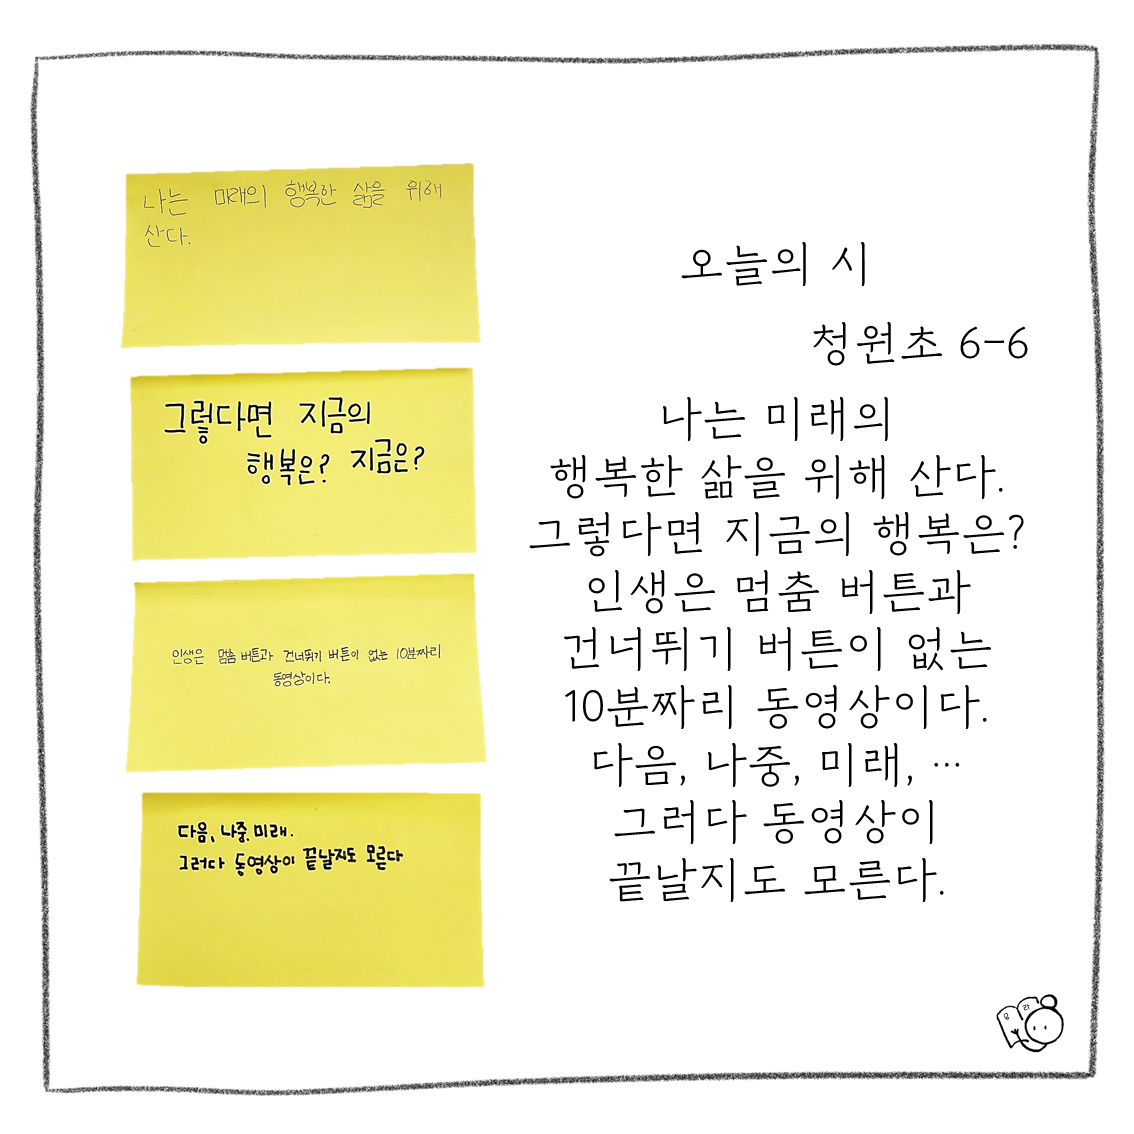 나는 미래의 행복한 삶을 위해
산다.
그렇다면 지금의
행복은? 지금은?
인생은 멈춤 버튼과 건너뛰기 버튼이 없는 10분짜리
동영상이다.
다음, 나중, 미래.
그러다 동영상이 끝날지도 모른다
오늘의 시
청원초 6-6
나는 미래의
행복한 삶을 위해 산다.
그렇다면 지금의 행복은?
인생은 멈춤 버튼과
건너뛰기 버튼이 없는
10분짜리 동영상이다.
다음, 나중, 미래, …
그러다 동영상이
끝날지도 모른다.